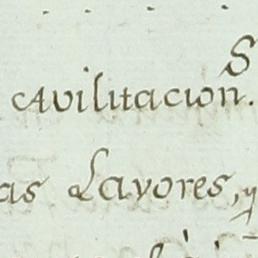 S
cavilitacion.
as Lavores, y